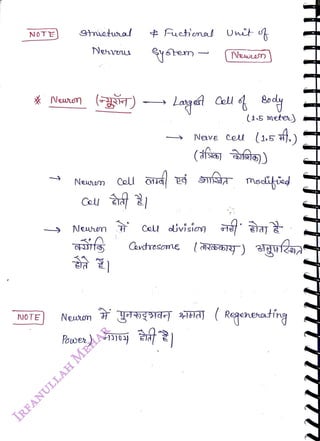 NOTE Structural & Fuctional Unit of
Nervous System — Neuron
* Neuron (न्यूरॉन) → Largest Cell of Body
(1.5 meter)
→ Nerve Cell (1.5 मी.)
(तंत्रिका कोशिका)
→ Neuron Cell लम्बी एवं शाखित modified
Cell होती है|
→ Neuron में Cell division नहीं होता है
क्योंकि Centrosome (तारककाय) अनुपस्थित
होते है|
NOTE Neuron में पुनरुद्भवन क्षमता (Regenerating
Power) नगण्य होती है|
IRFANULLAH MEHAR